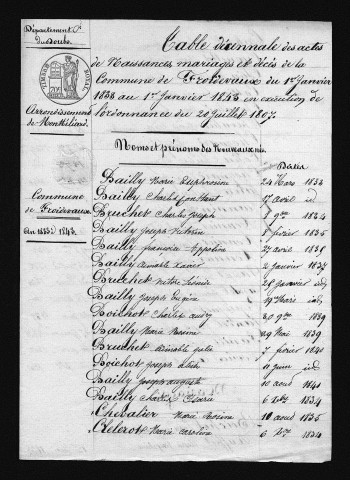 Département
du Doubs.
Arrondissement
de Montbéliard.
Commune
de Froidevaux.
An 1833 à 1843.
Table décennale des actes
de Naissances mariages et décès de la
Commune de Froidevaux du 1er Janvier
1833 au 1er Janvier 1843 en exécution de
l'ordonnance du 20 juillet 1807.
Noms et prénoms des Nouveaux-nés. Dates
Bailly Marie Euphrosine 24 Mars 1833
Bailly Charles Constant 17 avril id
Bruchet Charles joseph 8 9bre 1834
Bailly joseph 8 février 1835
Bailly françoise 27 avril 1835
Bailly aimable Xavier 2 janvier 1837
Bruchet 28 janvier id
Bailly joseph Eugène 19 Mars id
Boichot Charles 20 9bre 1839
Bailly Marie Rosine 29 Mai 1839
Bruchet aimable 7 février 1840
Boichot joseph 11 juin id
Bailly joseph auguste 10 aout 1840
Bailly 6 1834
Chevalier Marie Rosine 10 aout 1835
Clerot Marie Caroline 6 1834